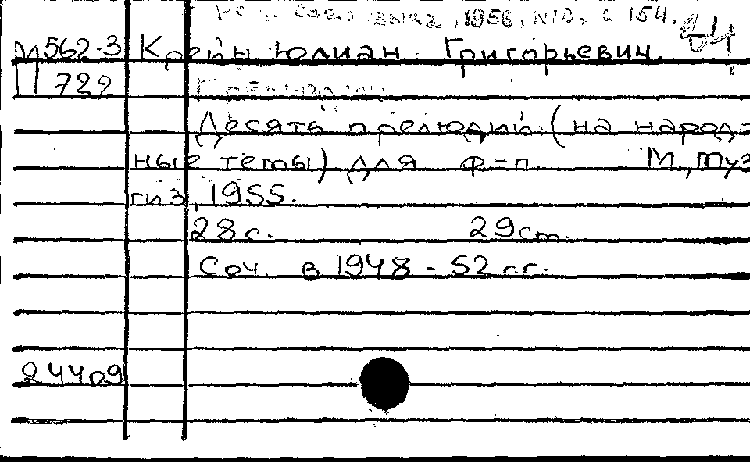 1956, N10, с 154.
М 562-3 Крейн Юлиан Григорьевич. 84
П 729
Десять прелюдий (на народ-
ные темы) для ф-п. М., Муз
гиз, 1955.
28 с. 29 cm.
Соч. в 1948 - 52 гг.
24409